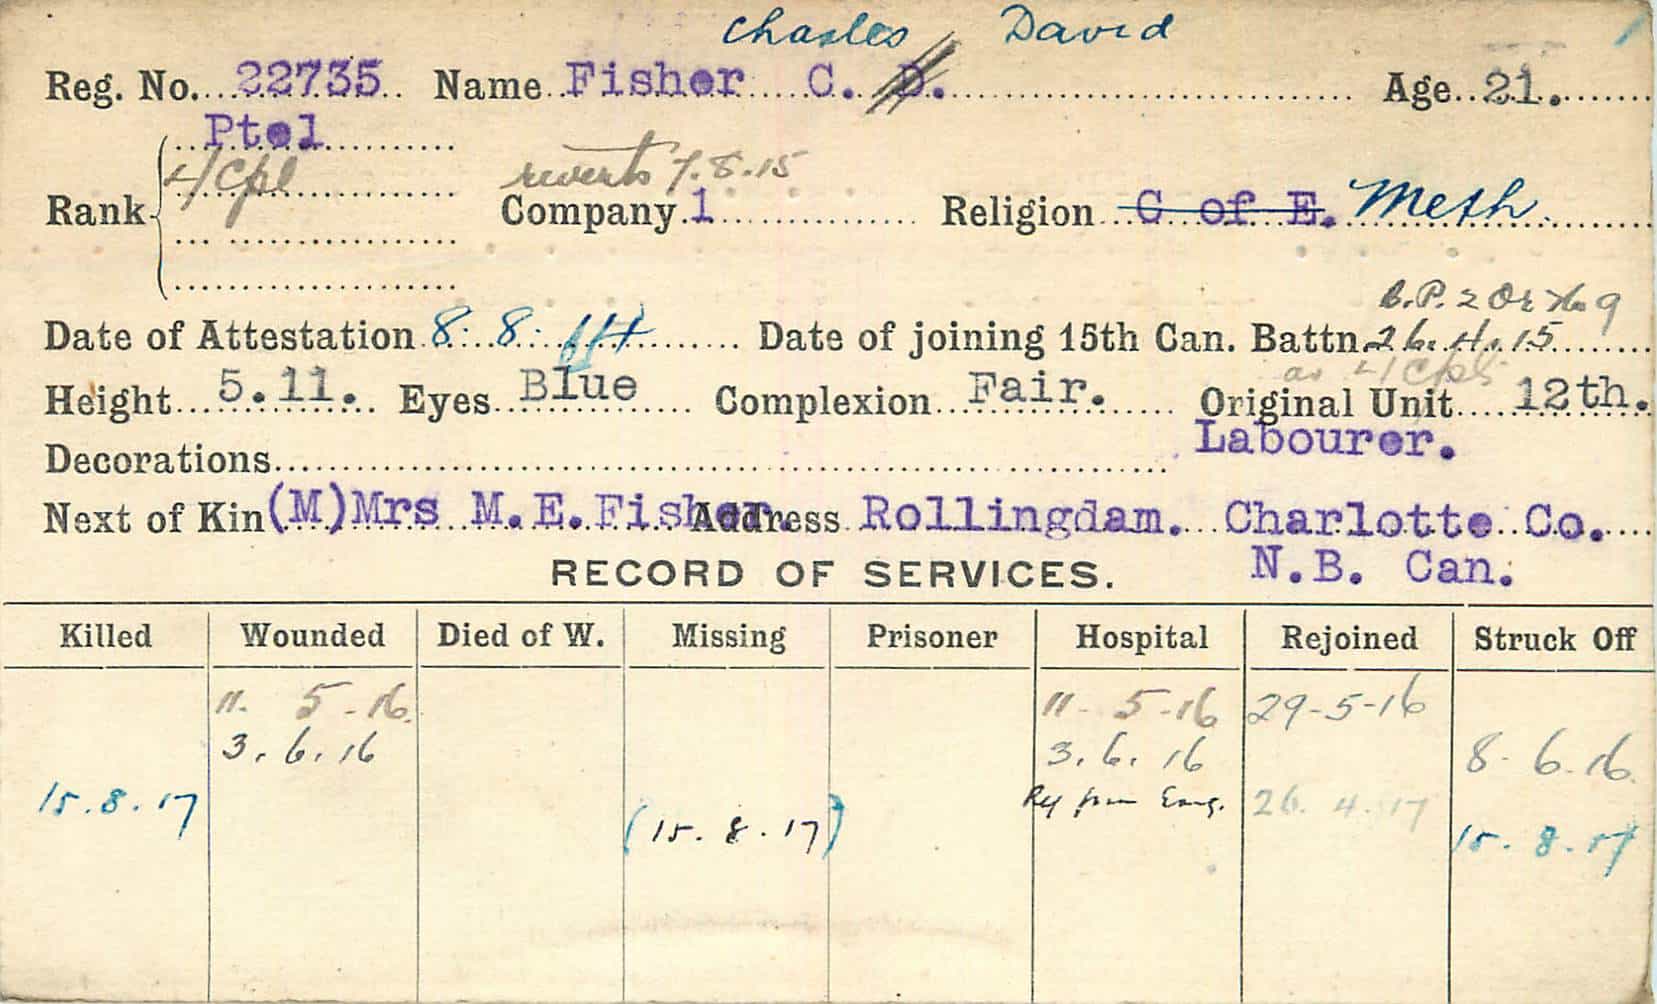 Charles David
Reg. No. 22735 Name Fisher C. D. Age 21.
Pte1
L/Cpl
reverts 7.8.15
Rank Company 1 Religion C of E. Meth.
B.P. 2 Or No 9
Date of Attestation 8. 8. Date of joining 15th Can. Battn. 26.4.15
as L/Cpl
Height 5.11. Eyes Blue Complexion Fair. Original Unit 12th.
Decorations Labourer.
Next of Kin (M) Mrs M.E. Fisher. Address Rollingdam. Charlotte Co.
RECORD OF SERVICES. N.B. Can.
Killed Wounded Died of W. Missing Prisoner Hospital Rejoined Struck Off
11. 5-16 11-5-16 29-5-16
3.6.16 3.6.16 8.6.16
15.8.17 from Eng. 26.4.17
(15.8.17) 15.8.17